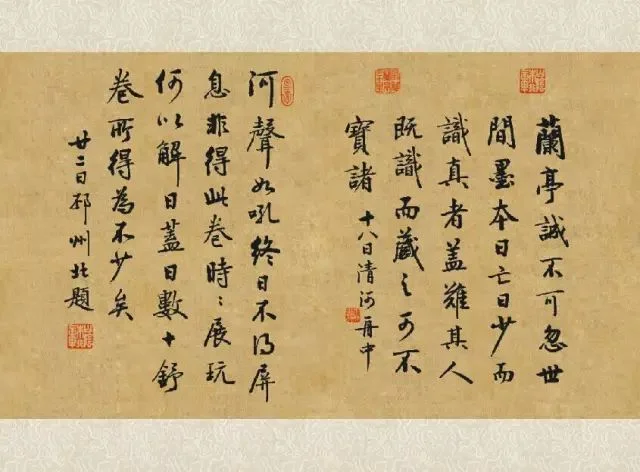 蘭亭誠不可忽世
間墨本日亡日少而
識真者蓋難其人
既識而藏之可不
寶諸 十八日清河舟中
河聲如吼終日不得屏
息非得此卷時〻展玩
何以解日蓋日數十舒
卷所得為不少矣
廿二日邳州北題